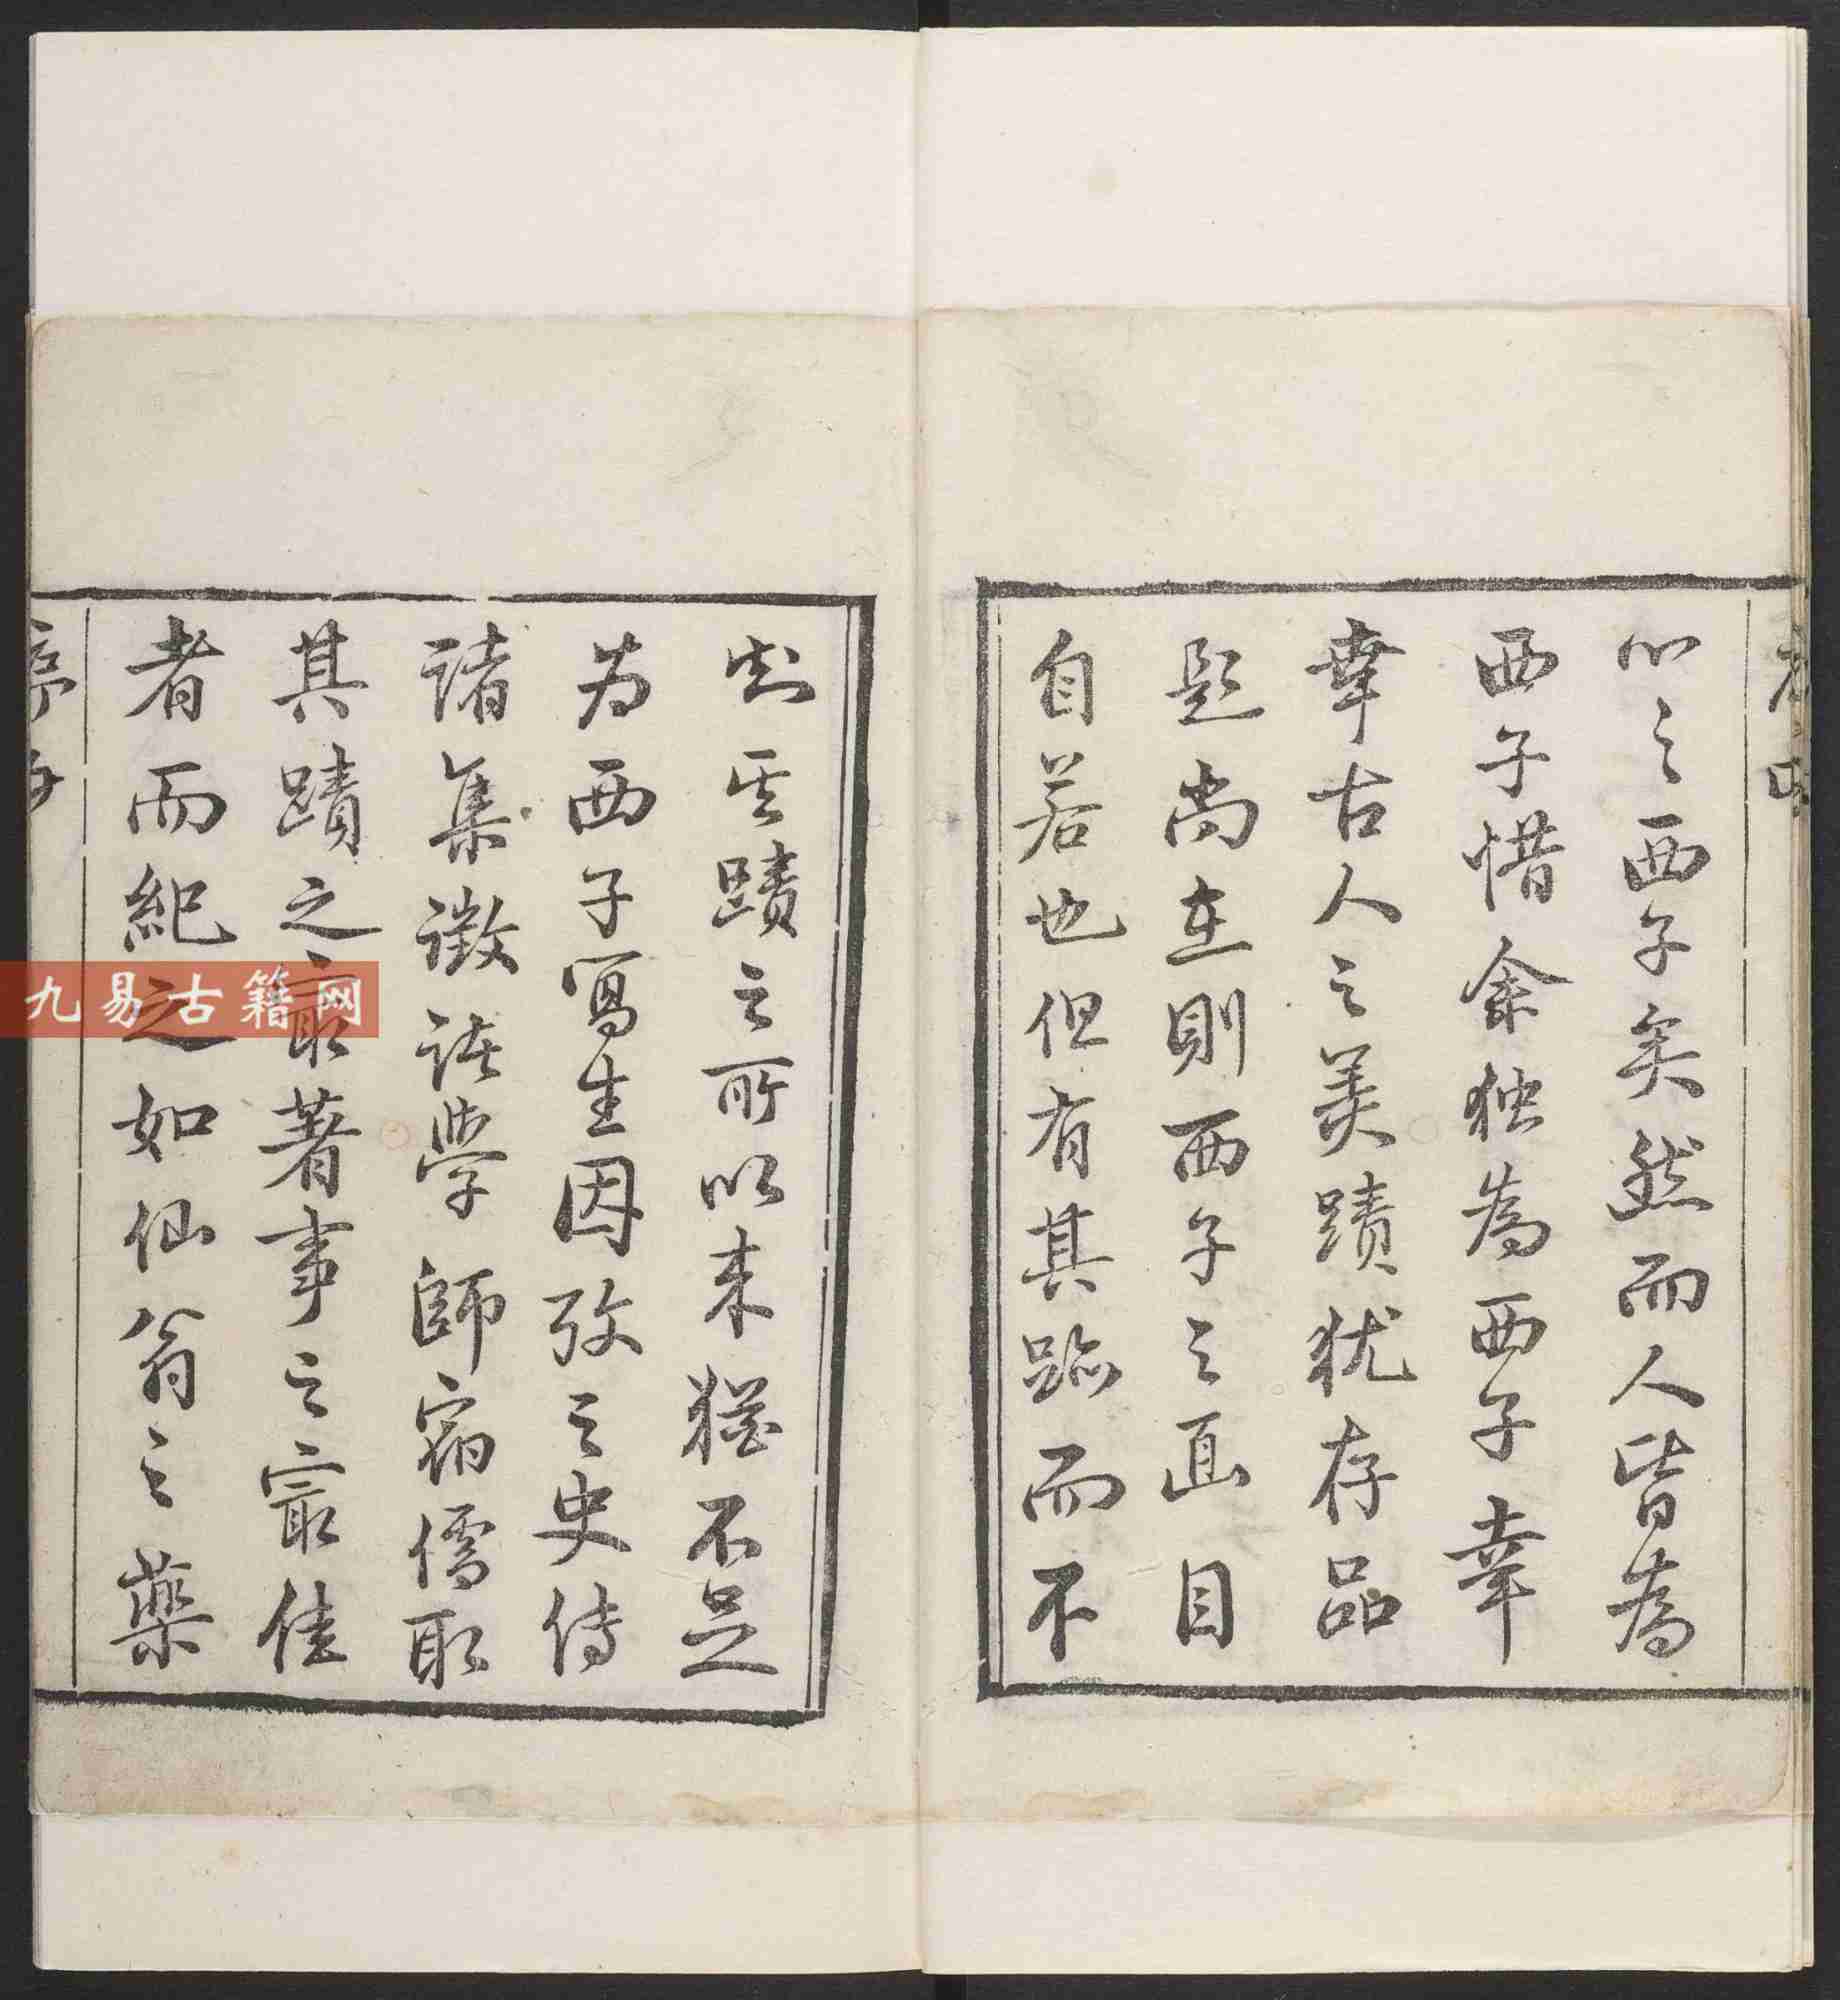 心之西子矣然而人皆為
西子惜余独為西子幸
幸古人之美蹟犹存品
題尚在則西子之面目
自若也但有其跡而不
知其蹟之所以来犹不足
为西子寫生因攷之史傳
諸集徵諸學師宿儒取
其蹟之最著事之最佳
者而紀之如仙翁之藥
序
九易古籍网